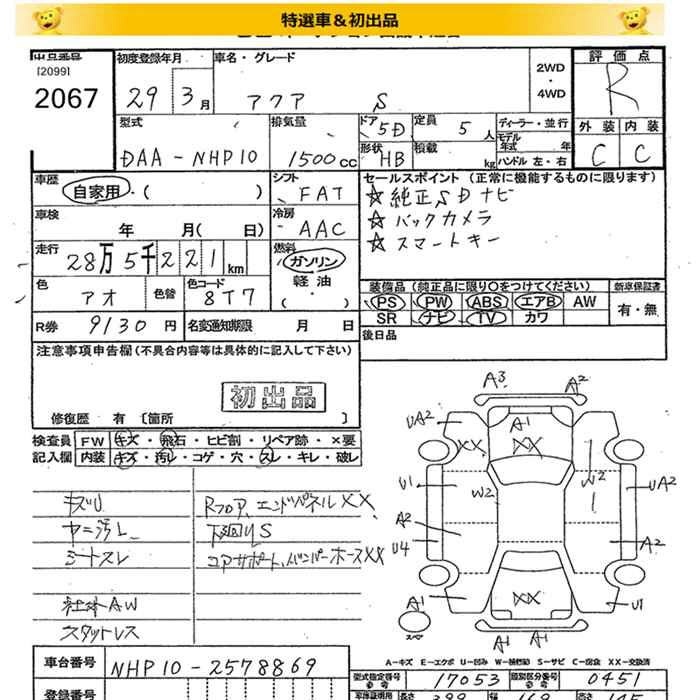 特選車＆初出品
[2099]
2067
初度登録年月
29 3月
車名・グレード
アクア S
2WD
・
4WD
評価点
R
外装 内装
C C
型式
DAA-NHP10
排気量
1500cc
ドア
5D
定員
5人
形状
HB
積載
kg
ディーラー・並行
モデル年式 年
ハンドル 左・右
車歴
自家用・( )
シフト
FAT
車検
年 月( 日)
冷房
AAC
走行
28万5千221km
燃料
ガソリン
軽油
・( )
色
アオ
色替
色コード
8T7
R券 9130円
名変通知期限 月 日
セールスポイント（正常に機能するものに限ります）
☆純正SDナビ
☆バックカメラ
☆スマートキー
装備品（純正品に限り〇をつけてください）
PS PW ABS エアB AW
SR ナビ TV カワ
新車保証書
有・無
後日品
注意事項申告欄(不具合内容等は具体的に記入して下さい)
初出品
修復歴 有 〔箇所 〕
検査員記入欄
FW キズ・飛石・ヒビ割・リペア跡・×要
内装 キズ・汚レ・コゲ・穴・スレ・キレ・破レ
キズU
ヤニ汚レ
シートスレ
社外AW
スタットレス
Rフロア、エンドパネルXX、
下廻りS
コアサポート、バンパーホースXX
A3 A2
UA2 A1
XX XX
U1 W2 W2 UA2
A2
U4 A2
A1 XX U1
スペア
A1 A1
A-キズ E-エクボ U-凹み W-補修跡 S-サビ C-腐食 XX-交換済
車台番号
NHP10-2578869
型式指定番号
参考
17053
類別区分番号
参考
0451
登録番号
長さ
399
幅
169
高さ
145